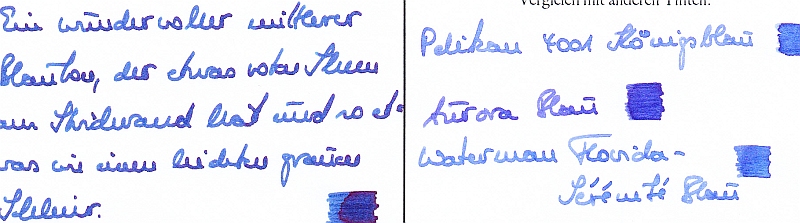 Ein wundervoller mittlerer
Blauton, der etwas rotes
am Strichrand hat und so et-
was wie einen leichten grauen
Schleier.
Vergleich mit anderen Tinten:
Pelikan 4001 Königsblau
Aurora Blau
Waterman Florida-
Sérénité Blau